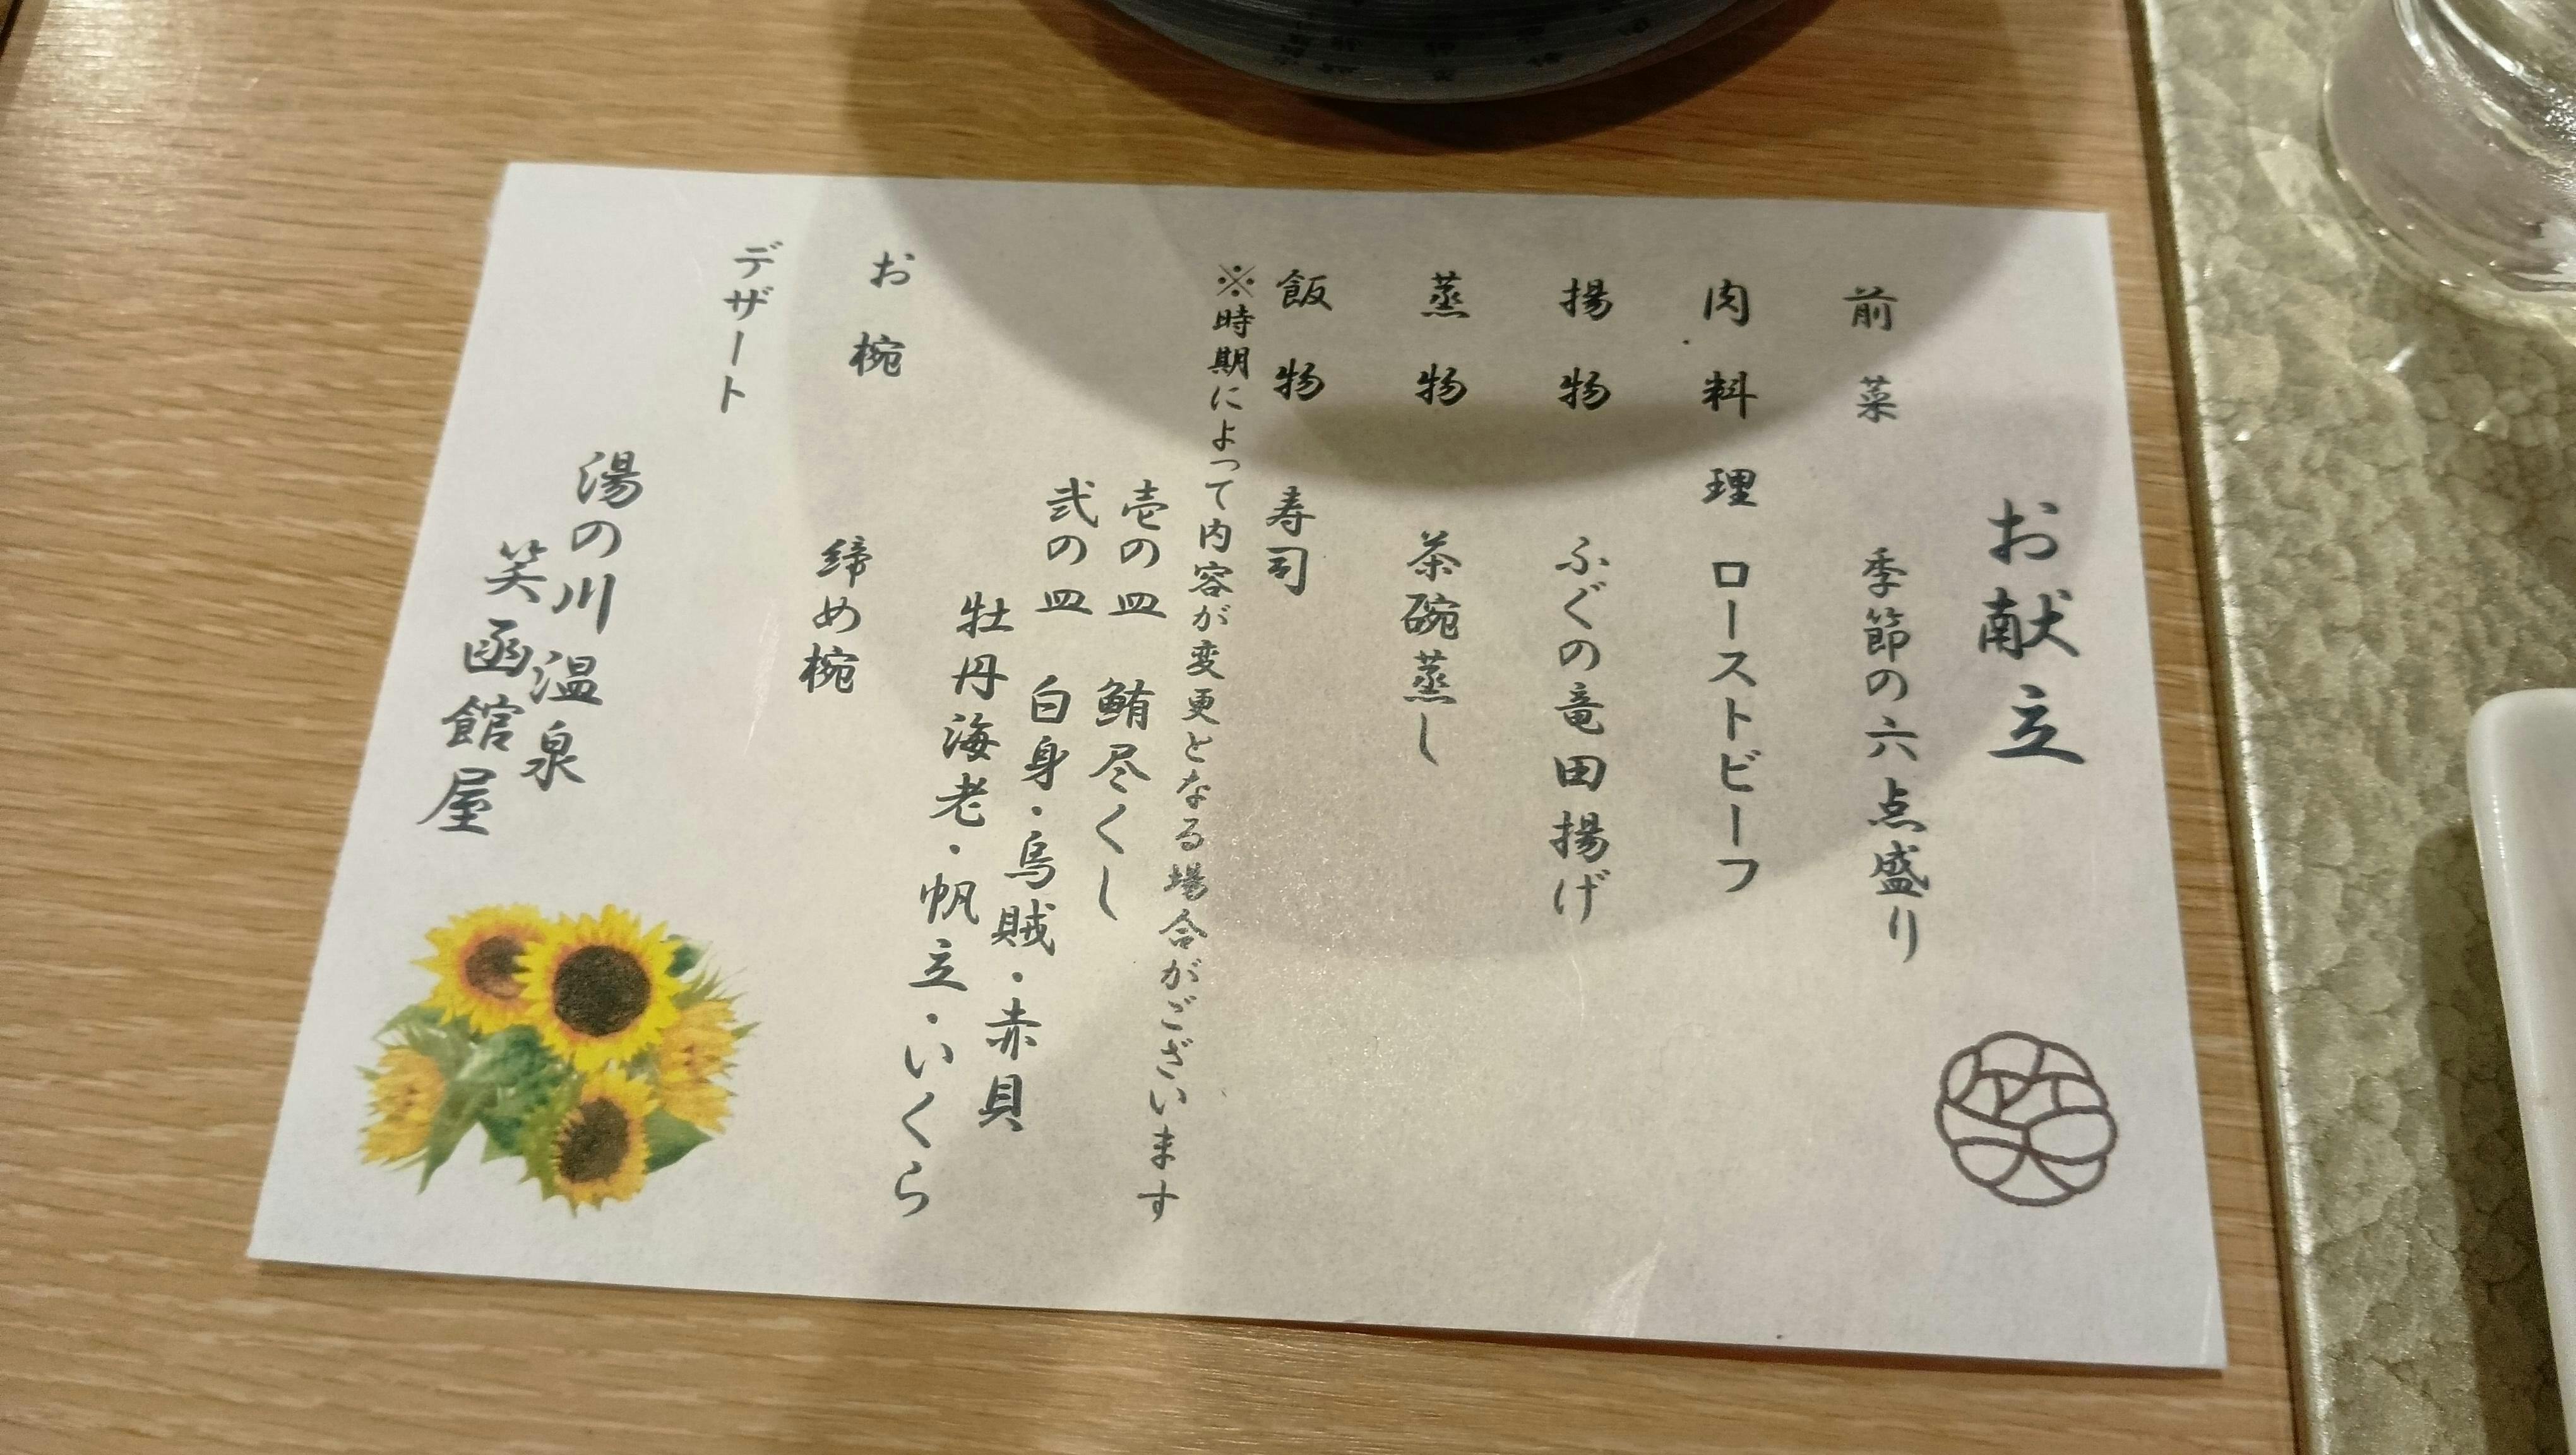 お献立
前菜 季節の六点盛り
肉料理 ローストビーフ
揚物 ふぐの竜田揚げ
蒸物 茶碗蒸し
飯物 寿司
※時期によって内容が変更となる場合がございます
壱の皿 鮪尽くし
弐の皿 白身・烏賊・赤貝
牡丹海老・帆立・いくら
お椀 締め椀
デザート
湯の川温泉
笑函館屋